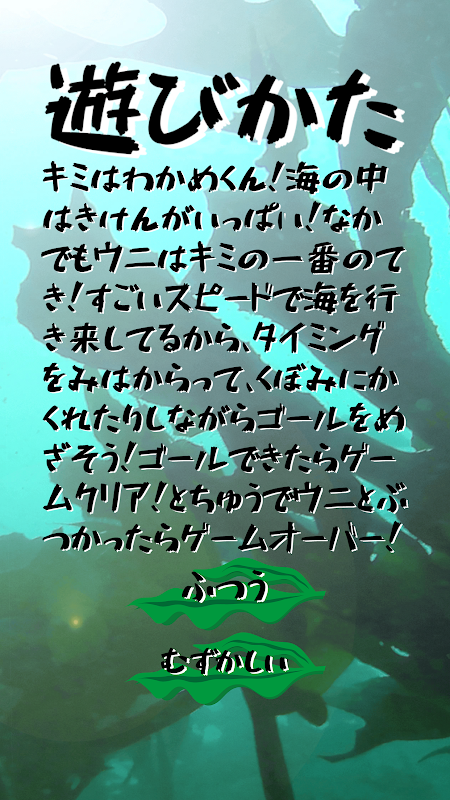 遊びかた
キミはわかめくん!海の中
はきけんがいっぱい!なか
でもウニはキミの一番のて
き!すごいスピードで海を行
き来してるから、タイミング
をみはからって、くぼみにか
くれたりしながらゴールをめ
ざそう!ゴールできたらゲー
ムクリア!とちゅうでウニとぶ
つかったらゲームオーバー!
ふつう
むずかしい